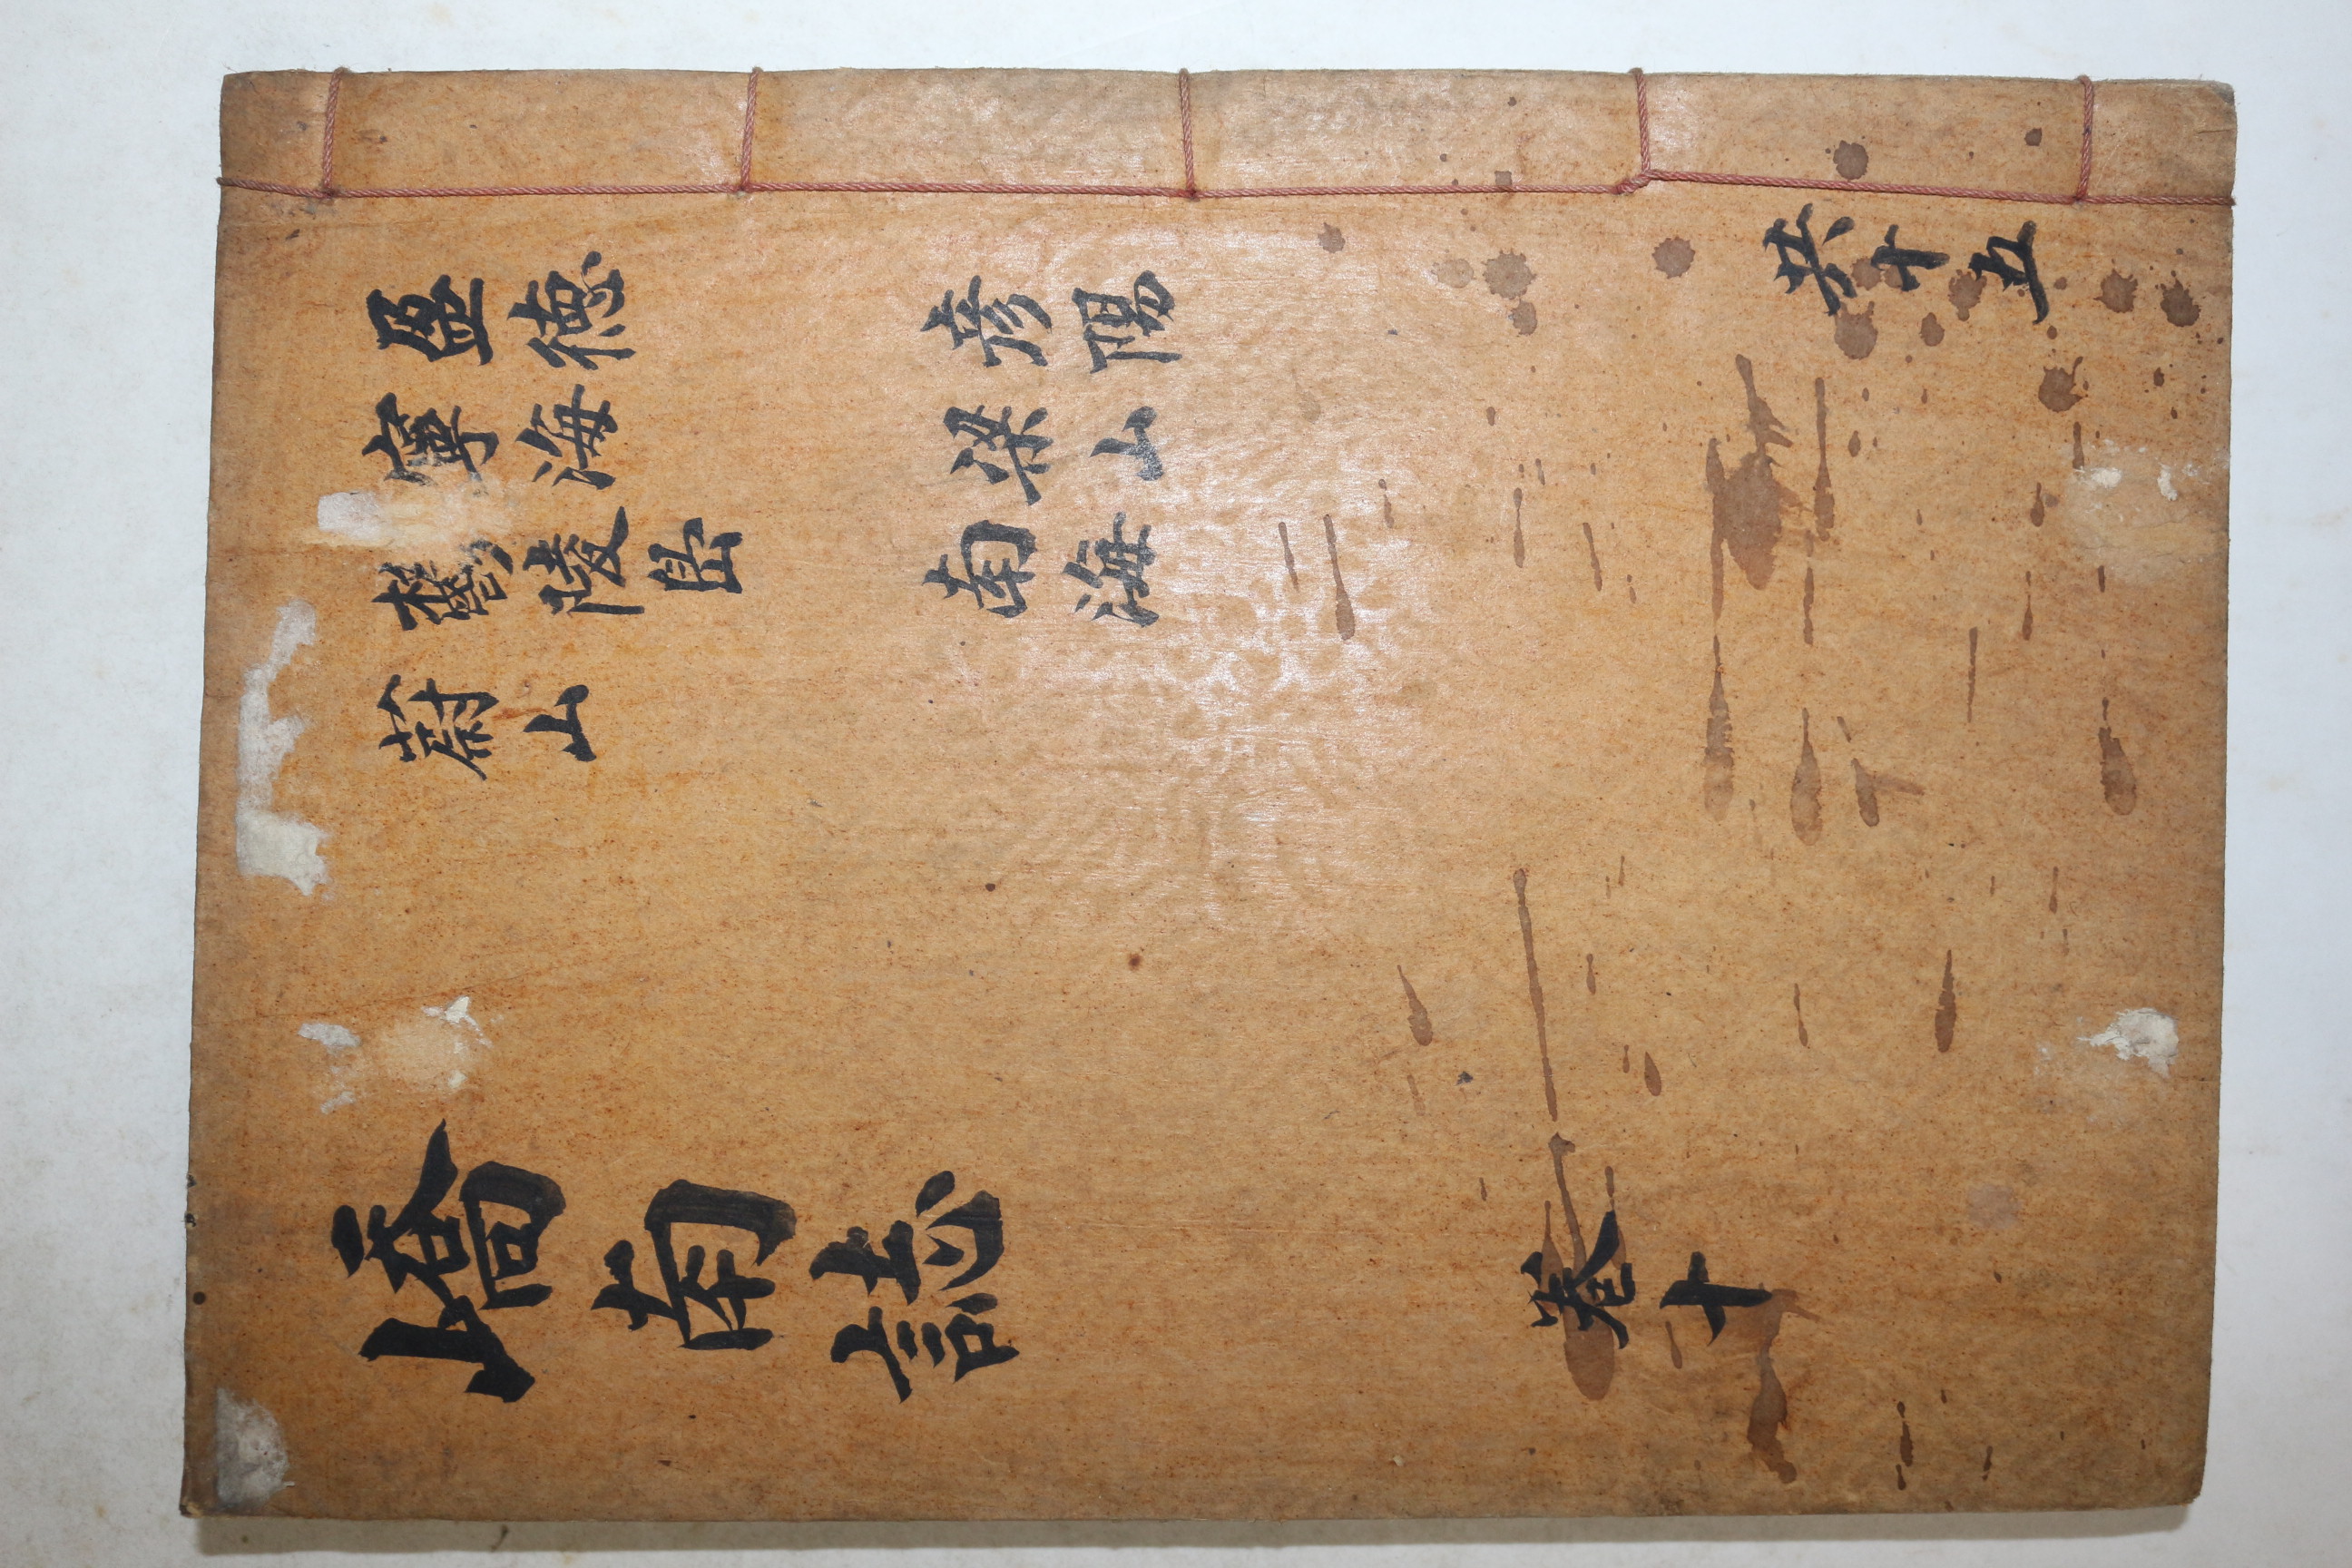 盈德
寧海
鬱陵島
蔚山
彦陽
梁山
南海
嶠南誌
卷十
共十五